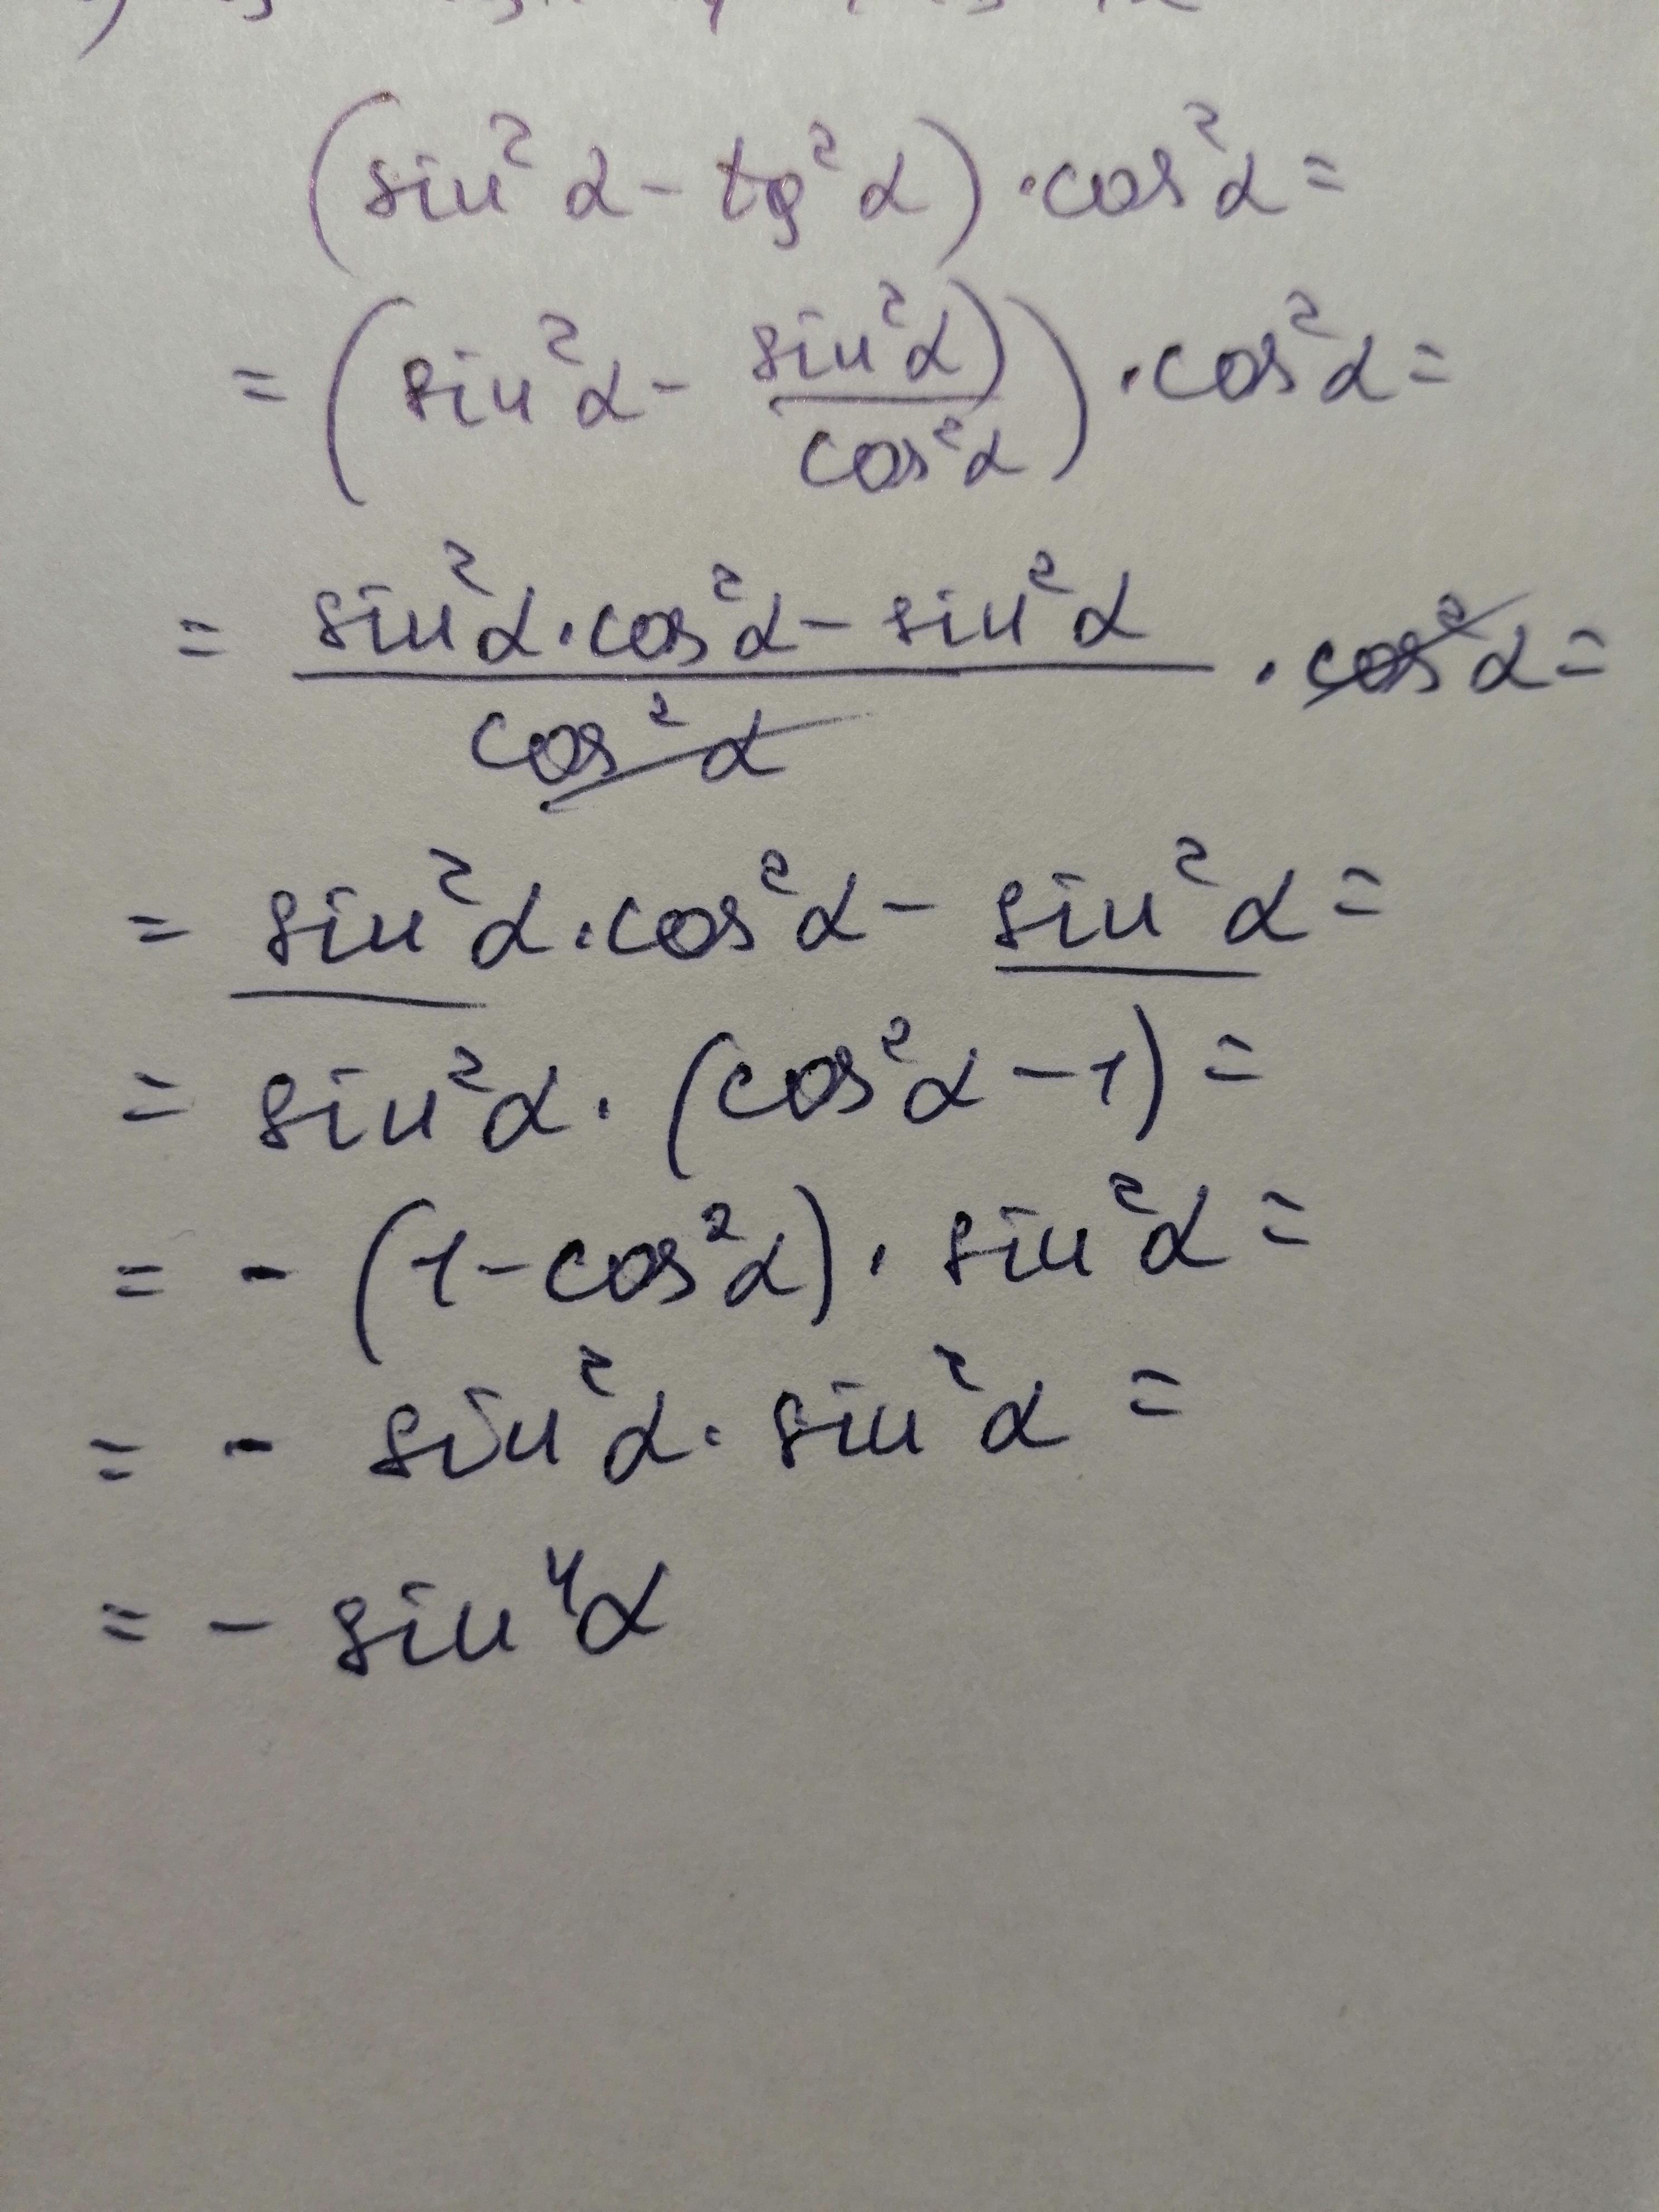 (sin²α - tg²α) · cos²α =
= (sin²α - sin²α / cos²α) · cos²α =
= (sin²α · cos²α - sin²α) / cos²α · cos²α =
= sin²α · cos²α - sin²α =
= sin²α · (cos²α - 1) =
= - (1 - cos²α) · sin²α =
= - sin²α · sin²α =
= - sin⁴α